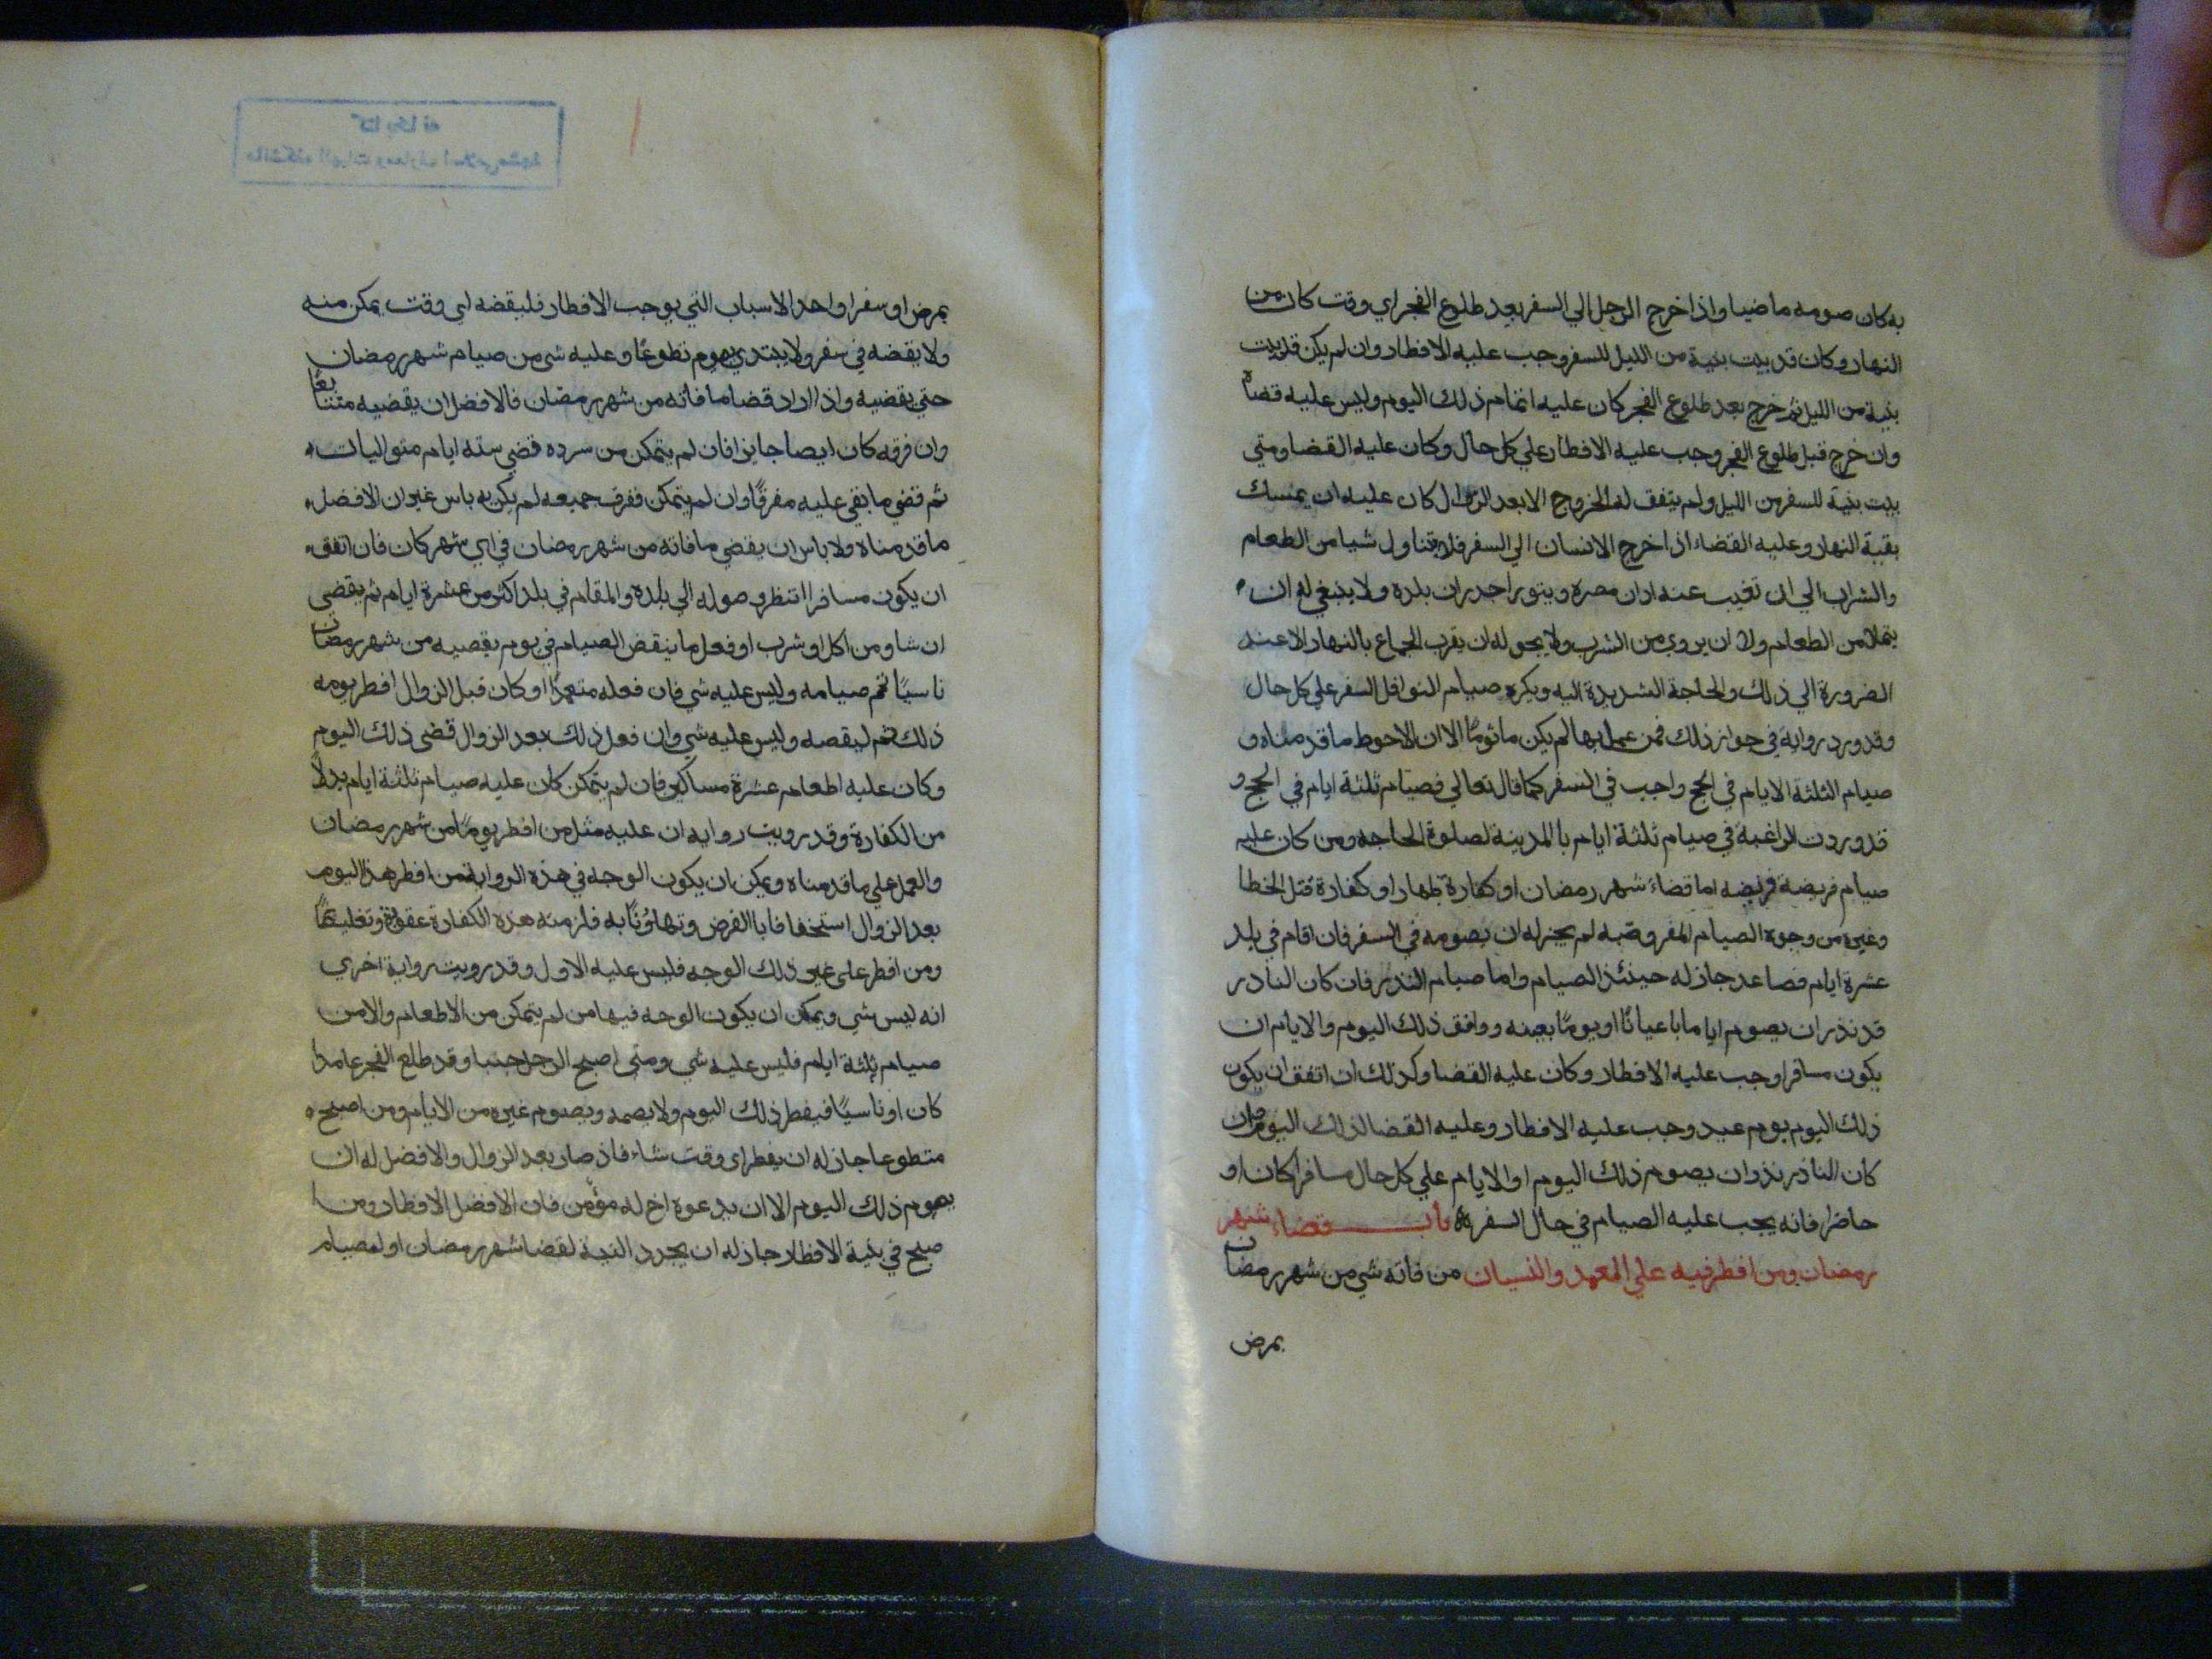 به كان صومه ماضيا واذا خرج الرجل الي السفر بعد طلوع الفجر اي وقت كان من
النهار وكان قد بيت بنية من الليل للسفر وجب عليه الافطار وان لم يكن قد بيت
بنية من الليل ثم خرج بعد طلوع الفجر كان عليه اتمام ذلك اليوم وليس عليه قضاء
وان خرج قبل طلوع الفجر وجب عليه الافطار علي كل حال وكان عليه القضا ومتي
بيت بنية للسفر من الليل ولم يتفق له الخروج الا بعد الزوال كان عليه ان يمسك
بقية النهار وعليه القضاء اذا خرج الانسان الي السفر فلا يتناول شيا من الطعام
والشراب الي ان تغيب عنه اذان مصره ويتوراجدران بلده ولا ينبغي له ان
يتملا من الطعام ولا ان يروي من الشرب ولا يجوله ان يقرب الجماع بالنهار الا عند
الضرورة الي ذلك والحاجة الشديدة اليه ويكره صيام النوافل السفر علي كل حال
وقد ورد رواية في جواز ذلك فمن عمل بها لم يكن ماثومًا الا ان الاحوط ما قدمناه و
صيام الثلثة الايام في الحج واجب في السفر كما قال تعالي فصيام ثلثة ايام في الحج و
قد وردت الراغبة في صيام ثلثة ايام باالمدينة لصلوة الحاجه ومن كان عليه
صيام فريضة فريضه اما قضاء شهر رمضان او كفارة ظهار او كفارة قتل الخطا
وغيره من وجوه الصيام المفروضه لم يجز له ان يصومه في السفر فان اقام في بلد
عشرة ايام فصاعد جاز له حينئذ الصيام واما صيام النذر فان كان الناذر
قد نذر ان يصوم اياما باعيانًا او يومًا بعينه ووافق ذلك اليوم والايام ان
يكون مسافرا وجب عليه الافطار وكان عليه القضا وكذلك ان اتفق ان يكون
ذلك اليوم يوم عيد وجب عليه الافطار وعليه القضا لذلك اليوم وان
كان الناذر نذر ان يصوم ذلك اليوم او الايام علي كل حال مسافرا كان او
حاضرا فانه يجب عليه الصيام في حال السفر باب قضاء شهر
رمضان ومن افطر فيه علي المعهد والنسيان من فاته شي من شهر رمضان
بمرض
بمرض او سفر او احد الاسباب التي يوجب الافطار فليقضه اي وقت يمكن منه
ولا يقضه في سفر ولا يبتدي بصوم تطوعًا وعليه شي من صيام شهر رمضان
حتي يقضيه واذا اراد قضا ما فاته من شهر رمضان فالافضل ان يقضيه متتابعًا
وان فرقه كان ايصا جايزا فان لم يتمكن من سرده قضي سته ايام متواليات
ثم قضي ما بقي عليه مفرقًا وان لم يتمكن ففرق جميعه لم يكن به باس غير ان الافضل
ما قدمناه ولا باس ان يقضي ما فاته من شهر رمضان في اي شهر كان فان اتفق
ان يكون مسافرا انتظر وصوله الي بلده والمقام في بلد اكثر من عشرة ايام ثم يقضي
ان شا ومن اكل او شرب او فعل ما ينقض الصيام في يوم يقصيه من شهر رمضان
ناسيًا تم صيامه وليس عليه شي فان فعله متعمدًا او كان قبل الزوال افطر يومه
ذلك ثم ليقصه وليس عليه شي وان فعل ذلك بعد الزوال قضى ذلك اليوم
وكان عليه اطعام عشرة مساكين فان لم يتمكن كان عليه صيام ثلثة ايام بدلاً
من الكفارة وقد رويت روايه ان عليه مثل من افطر يومًا من شهر رمضان
والعمل علي ما قدمناه ويمكن ان يكون الوجه في هذه الرواية من افطر هذا اليوم
بعد الزوال استخفافا باالفرض وتهاوُنًا به فلزمته هذه الكفارة عقوبة وتغليظًا
ومن افطر على غير ذلك الوجه فليس عليه الاول وقد رويت رواية اخري
انه ليس شي ويمكن ان يكون الوجه فيها من لم يتمكن من الاطعام والا من
صيام ثلثة ايام فليس عليه شي ومتى اصبح الرجل جنبا وقد طلع الفجر عامدا
كان او ناسيًا فيفطر ذلك اليوم ولا يصمه ويصوم غيره من الايام ومن اصبح
متطوعا جاز له ان يفطر اى وقت شاء فاذ صار بعد الزوال والافضل له ان
يصوم ذلك اليوم الا ان يدعوه اخ له مؤمن فان الافضل الافطار ومن ا
صبح في بنية الافطار جاز له ان يجدد النية لقضا شهر رمضان او لصيام